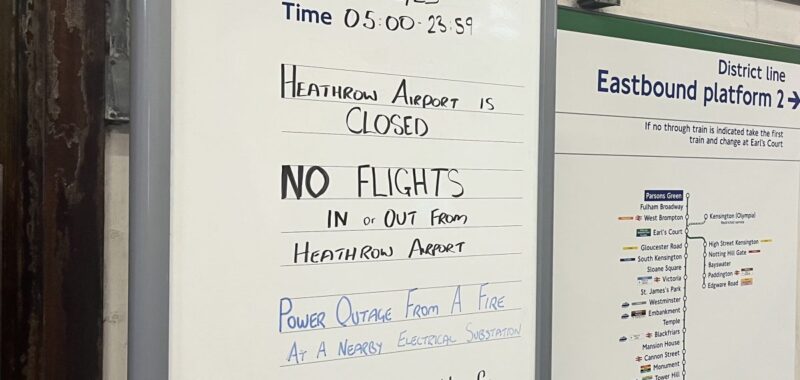 Time 05:00-23:59
HEATHROW AIRPORT IS
CLOSED
NO FLIGHTS
IN or OUT FROM
HEATHROW AIRPORT
POWER OUTAGE FROM A FIRE
AT A NEARBY ELECTRICAL SUBSTATION
District line
Eastbound platform 2 →
If no through train is indicated take the first
train and change at Earl's Court
Parsons Green
Fulham Broadway
West Brompton
Kensington (Olympia)
Earl's Court
Gloucester Road
High Street Kensington
South Kensington
Notting Hill Gate
Sloane Square
Bayswater
Victoria
Paddington
St. James's Park
Edgware Road
Westminster
Embankment
Temple
Blackfriars
Mansion House
Cannon Street
Monument
Tower Hill